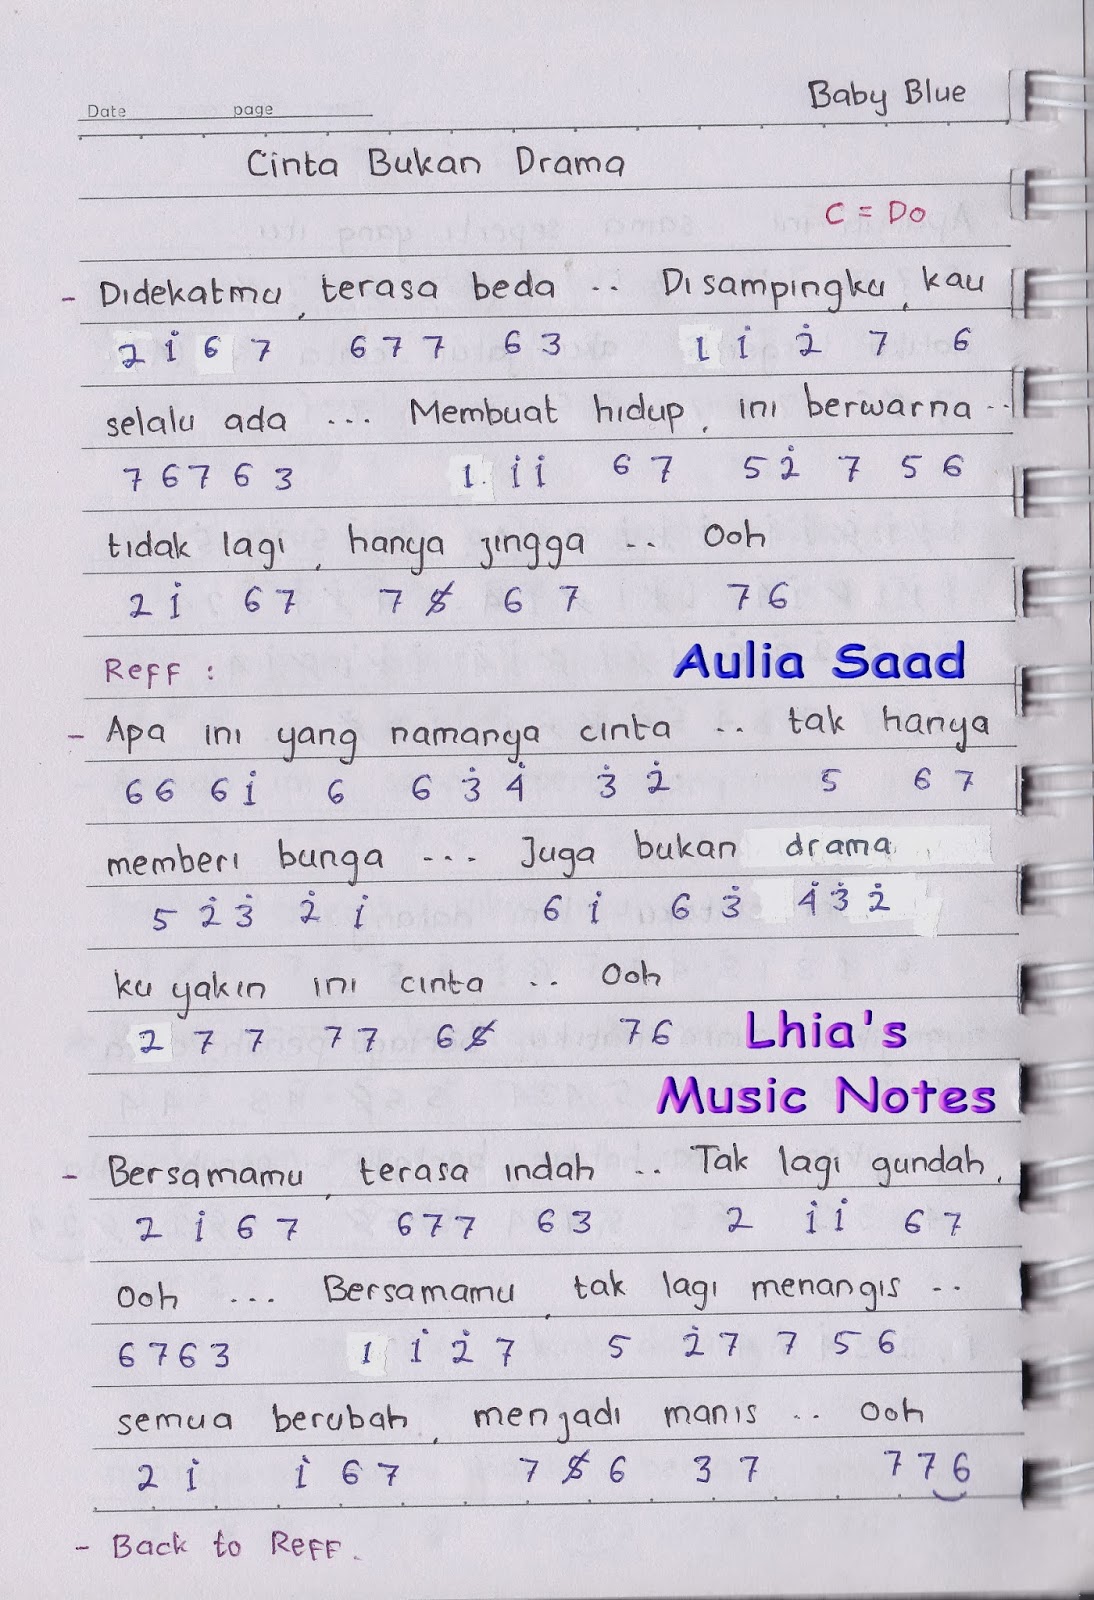 Date page
Baby Blue
Cinta Bukan Drama
C = Do
- Didekatmu, terasa beda .. Disampingku, kau
2 i̇ 6 7 6 7 7 6 3 1 i̇ 2̇ 7 6
selalu ada ... Membuat hidup, ini berwarna ..
7 6 7 6 3 1 i̇ i̇ 6 7 5 2̇ 7 5 6
tidak lagi, hanya jingga .. Ooh
2 i̇ 6 7 7 5̸ 6 7 7 6
Reff :
Aulia Saad
- Apa ini yang namanya cinta .. tak hanya
6 6 6 i̇ 6 6 3̇ 4̇ 3̇ 2̇ 5 6 7
memberi bunga ... Juga bukan drama
5 2̇ 3̇ 2̇ i̇ 6 i̇ 6 3̇ 4̇ 3̇ 2̇
ku yakin ini cinta .. Ooh
2 7 7 7 7 6 5̸ 7 6
Lhia's
Music Notes
- Bersamamu, terasa indah .. Tak lagi gundah,
2 i̇ 6 7 6 7 7 6 3 2 i̇ i̇ 6 7
Ooh ... Bersamamu, tak lagi menangis ..
6 7 6 3 1 i̇ 2̇ 7 5 2̇ 7 7 5 6
semua berubah, menjadi manis .. Ooh
2 i̇ i̇ 6 7 7 5̸ 6 3 7 7 7 6
- Back to Reff.